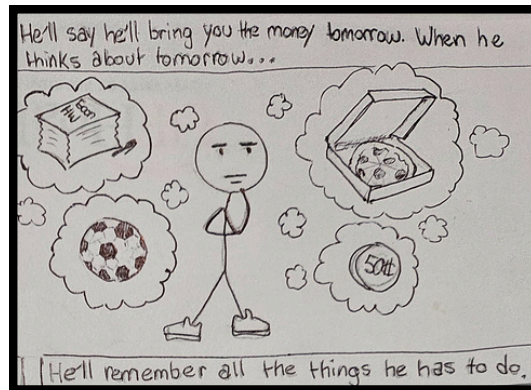 He'll say he'll bring you the money tomorrow. When he
thinks about tomorrow...
50¢
He'll remember all the things he has to do.